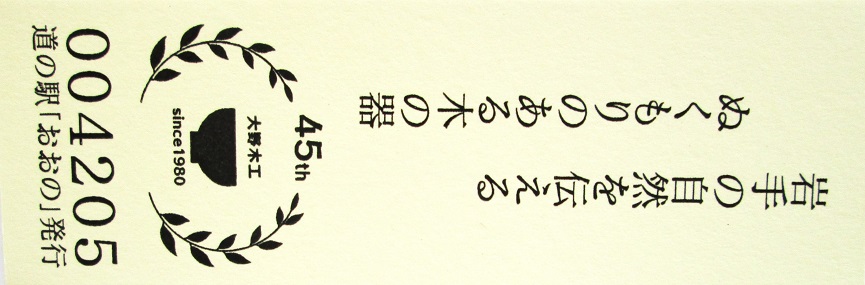 岩手の自然を伝える
ぬくもりのある木の器
45th
大野木工
since1980
004205
道の駅「おおの」発行